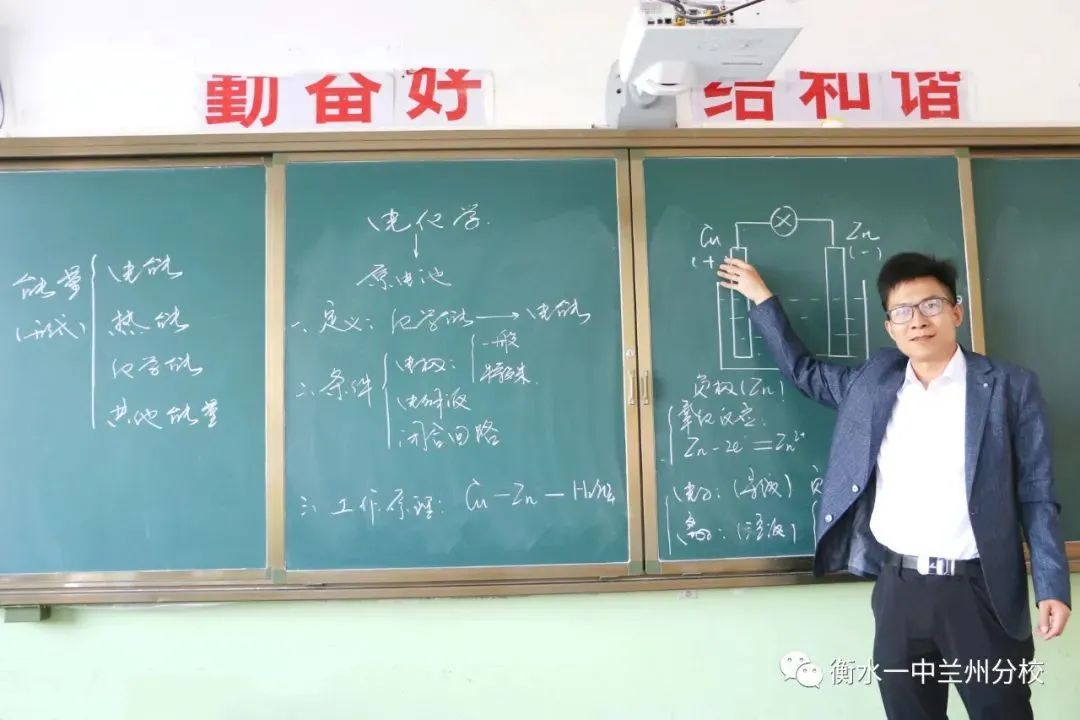 勤奋好
结和谐
能量
(形式)
电能
热能
化学能
其他能量
电化学
↓
原电池
一、定义：化学能→电能
二、条件
电极：
一般
特殊
电解液
闭合回路
三、工作原理：Cu-Zn-H₂SO₄
Cu
(+)
Zn
(-)
负极(Zn)
Zn-2e⁻=Zn²⁺
电子：(导线)
离子：(溶液)
负
衡水一中兰州分校